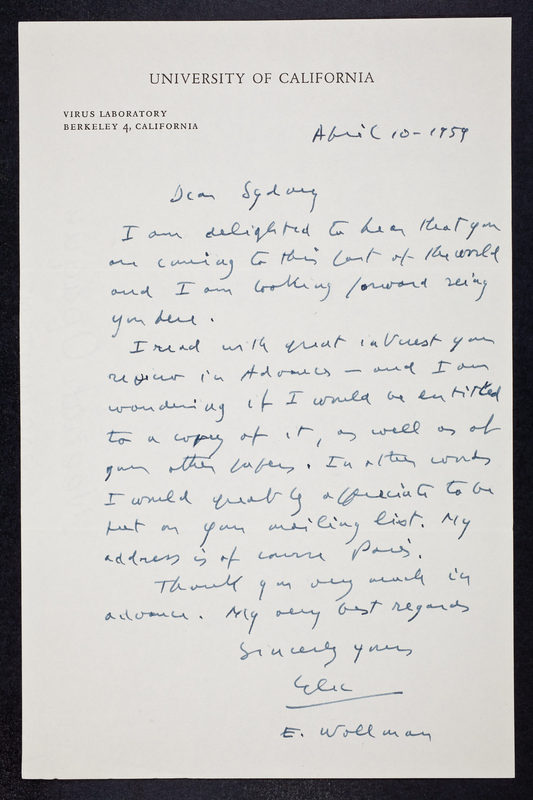 UNIVERSITY OF CALIFORNIA
VIRUS LABORATORY
BERKELEY 4, CALIFORNIA
April 10 - 1959
Dear Sydney
I am delighted to hear that you
are coming to this part of the world
and I am looking forward seing
you here.
I read with great interest your
review in Advances — and I am
wondering if I would be entitled
to a copy of it, as well as of
your other papers. In other words
I would greatly appreciate to be
put on your mailing list. My
address is of course Paris.
Thank you very much in
advance. My very best regards
Sincerely yours
Elie
E. Wollman